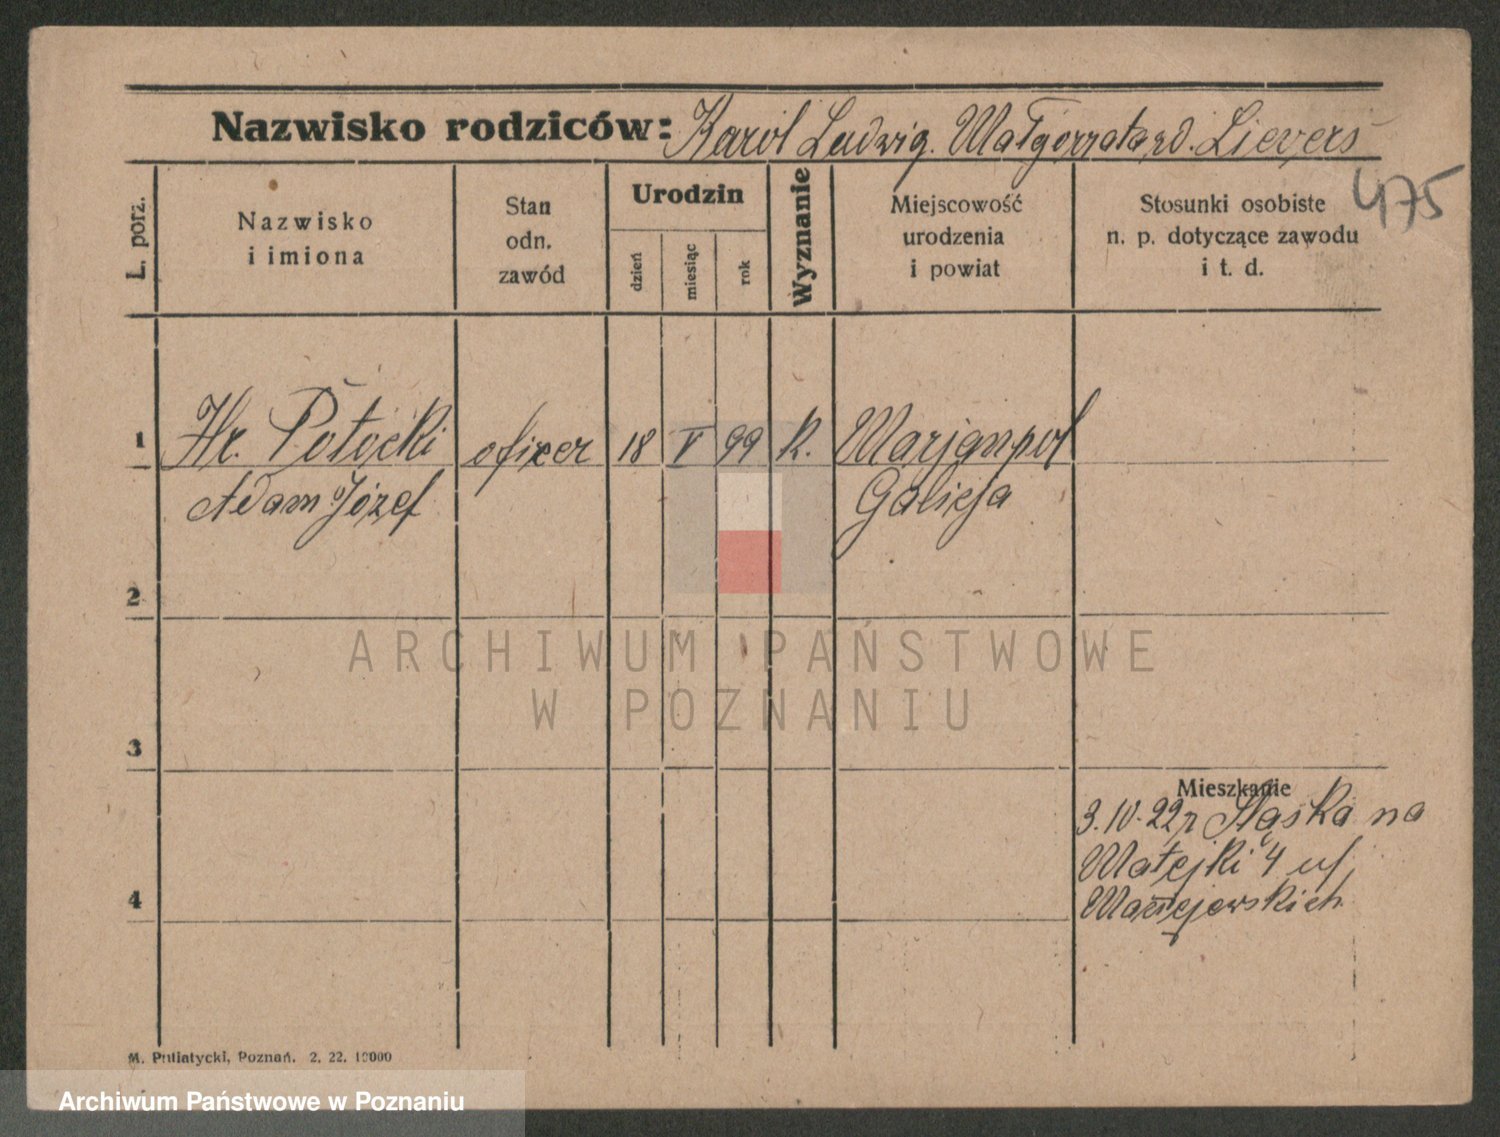 Nazwisko rodziców: Karol Ludwig. Małgorzata zd. Lievers
475
L. porz.
Nazwisko
i imiona
Stan
odn.
zawód
Urodzin
dzień
miesiąc
rok
Wyznanie
Miejscowość
urodzenia
i powiat
Stosunki osobiste
n. p. dotyczące zawodu
i t. d.
1 Hr. Potocki oficer 18 V 99 k. Marjanpol
Adam Józef Galicja
2
ARCHIWUM PAŃSTWOWE
W POZNANIU
3
Mieszkanie
3.10.22r Śląska na
Matejki 4 u
Maciejewskich
4
M. Putiatycki, Poznań. 2. 22. 10000
Archiwum Państwowe w Poznaniu